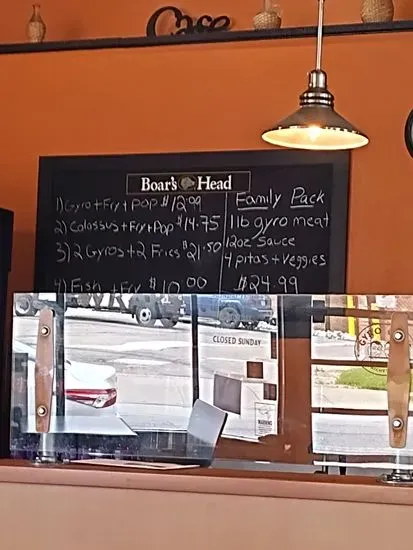 Cafe
Boar's Head
1) Gyro + Fry + Pop $12.99
2) Colossus + Fry + Pop $14.75
3) 2 Gyros + 2 Fries $21.50
4) Fish + Fry $10.00
Family Pack
1lb gyro meat
12oz Sauce
4 pitas + Veggies
$24.99
CLOSED SUNDAY